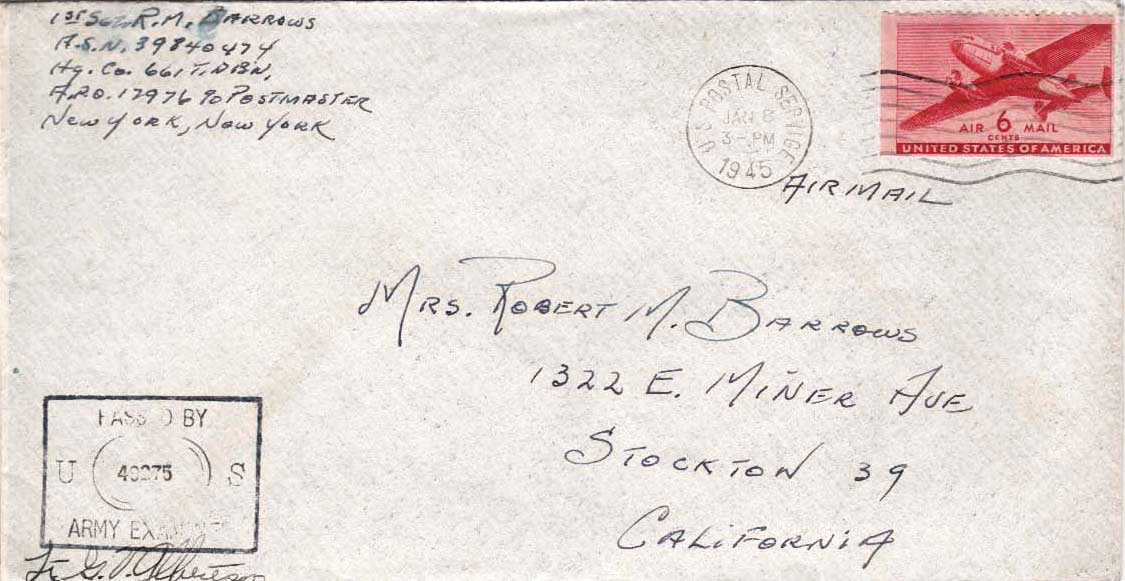 1st Sgt. R. M. BARROWS
A.S.N. 39840474
Hq. Co. 661 T.D BN.
A.P.O. 17976 % POSTMASTER
NEW YORK, NEW YORK
U.S. POSTAL SERVICE
JAN 8
3-PM
1945
AIR 6 MAIL
CENTS
UNITED STATES OF AMERICA
AIRMAIL
MRS. ROBERT M. BARROWS
1322 E. MINER AVE
STOCKTON 39
CALIFORNIA
PASSED BY
U 40275 S
ARMY EXAMINER